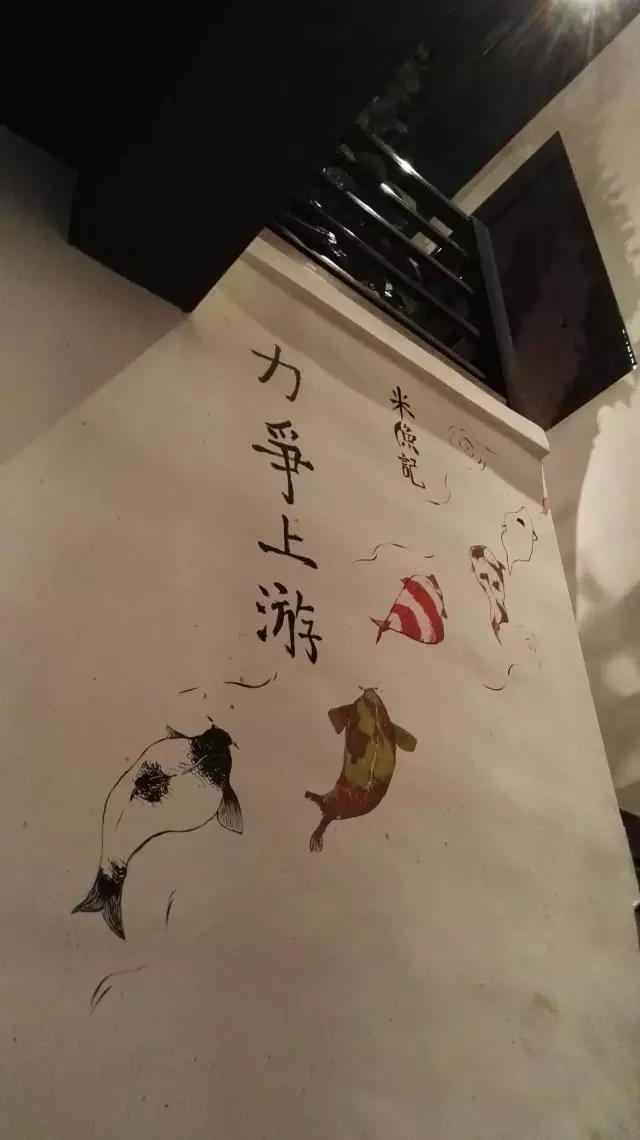 力爭上游
米魚記